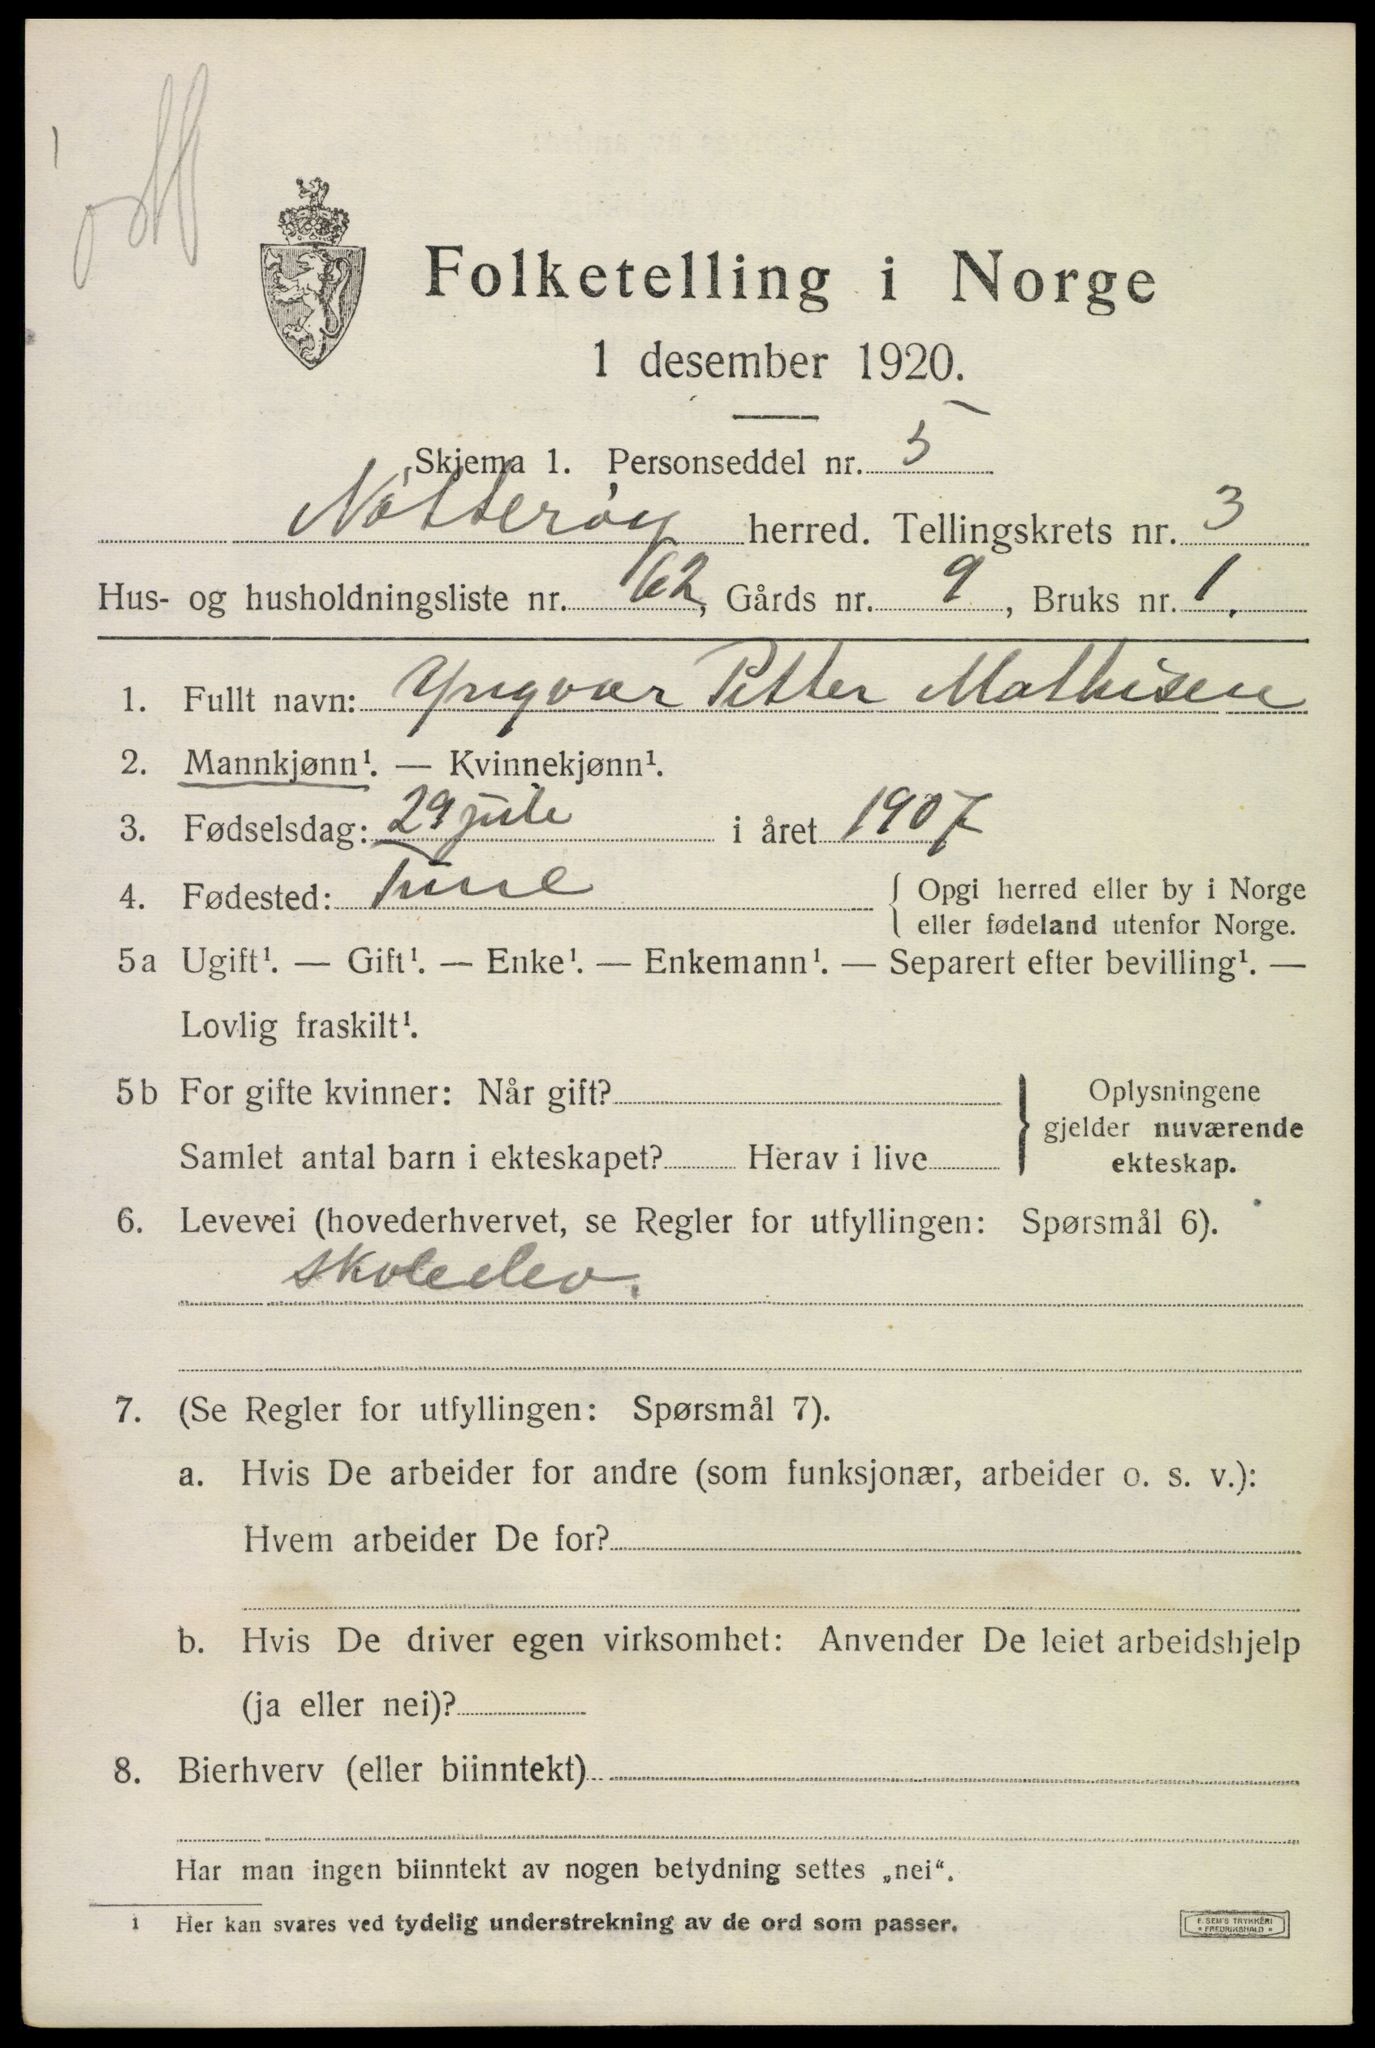 Folketelling i Norge
1 desember 1920.
Skjema 1. Personseddel nr. 5
Nøtterøy herred. Tellingskrets nr. 3
Hus- og husholdningsliste nr. 62, Gårds nr. 9, Bruks nr. 1.
1. Fullt navn: Yngvar Petter Mathisen
2. Mannkjønn¹. — Kvinnekjønn¹.
3. Fødselsdag: 29 juli i året 1907
4. Fødested: Tune { Opgi herred eller by i Norge
eller fødeland utenfor Norge.
5a Ugift¹. — Gift¹. — Enke¹. — Enkemann¹. — Separert efter bevilling¹. —
Lovlig fraskilt¹.
5b For gifte kvinner: Når gift? } Oplysningene
gjelder nuværende
Samlet antal barn i ekteskapet? Herav i live
ekteskap.
6. Levevei (hovederhvervet, se Regler for utfyllingen: Spørsmål 6).
skoleelev.
7. (Se Regler for utfyllingen: Spørsmål 7).
a. Hvis De arbeider for andre (som funksjonær, arbeider o. s. v.):
Hvem arbeider De for?
b. Hvis De driver egen virksomhet: Anvender De leiet arbeidshjelp
(ja eller nei)?
8. Bierhverv (eller biinntekt)
Har man ingen biinntekt av nogen betydning settes „nei“.
1 Her kan svares ved tydelig understrekning av de ord som passer.
E. SEM'S TRYKKERI
* FREDRIKSHALD *